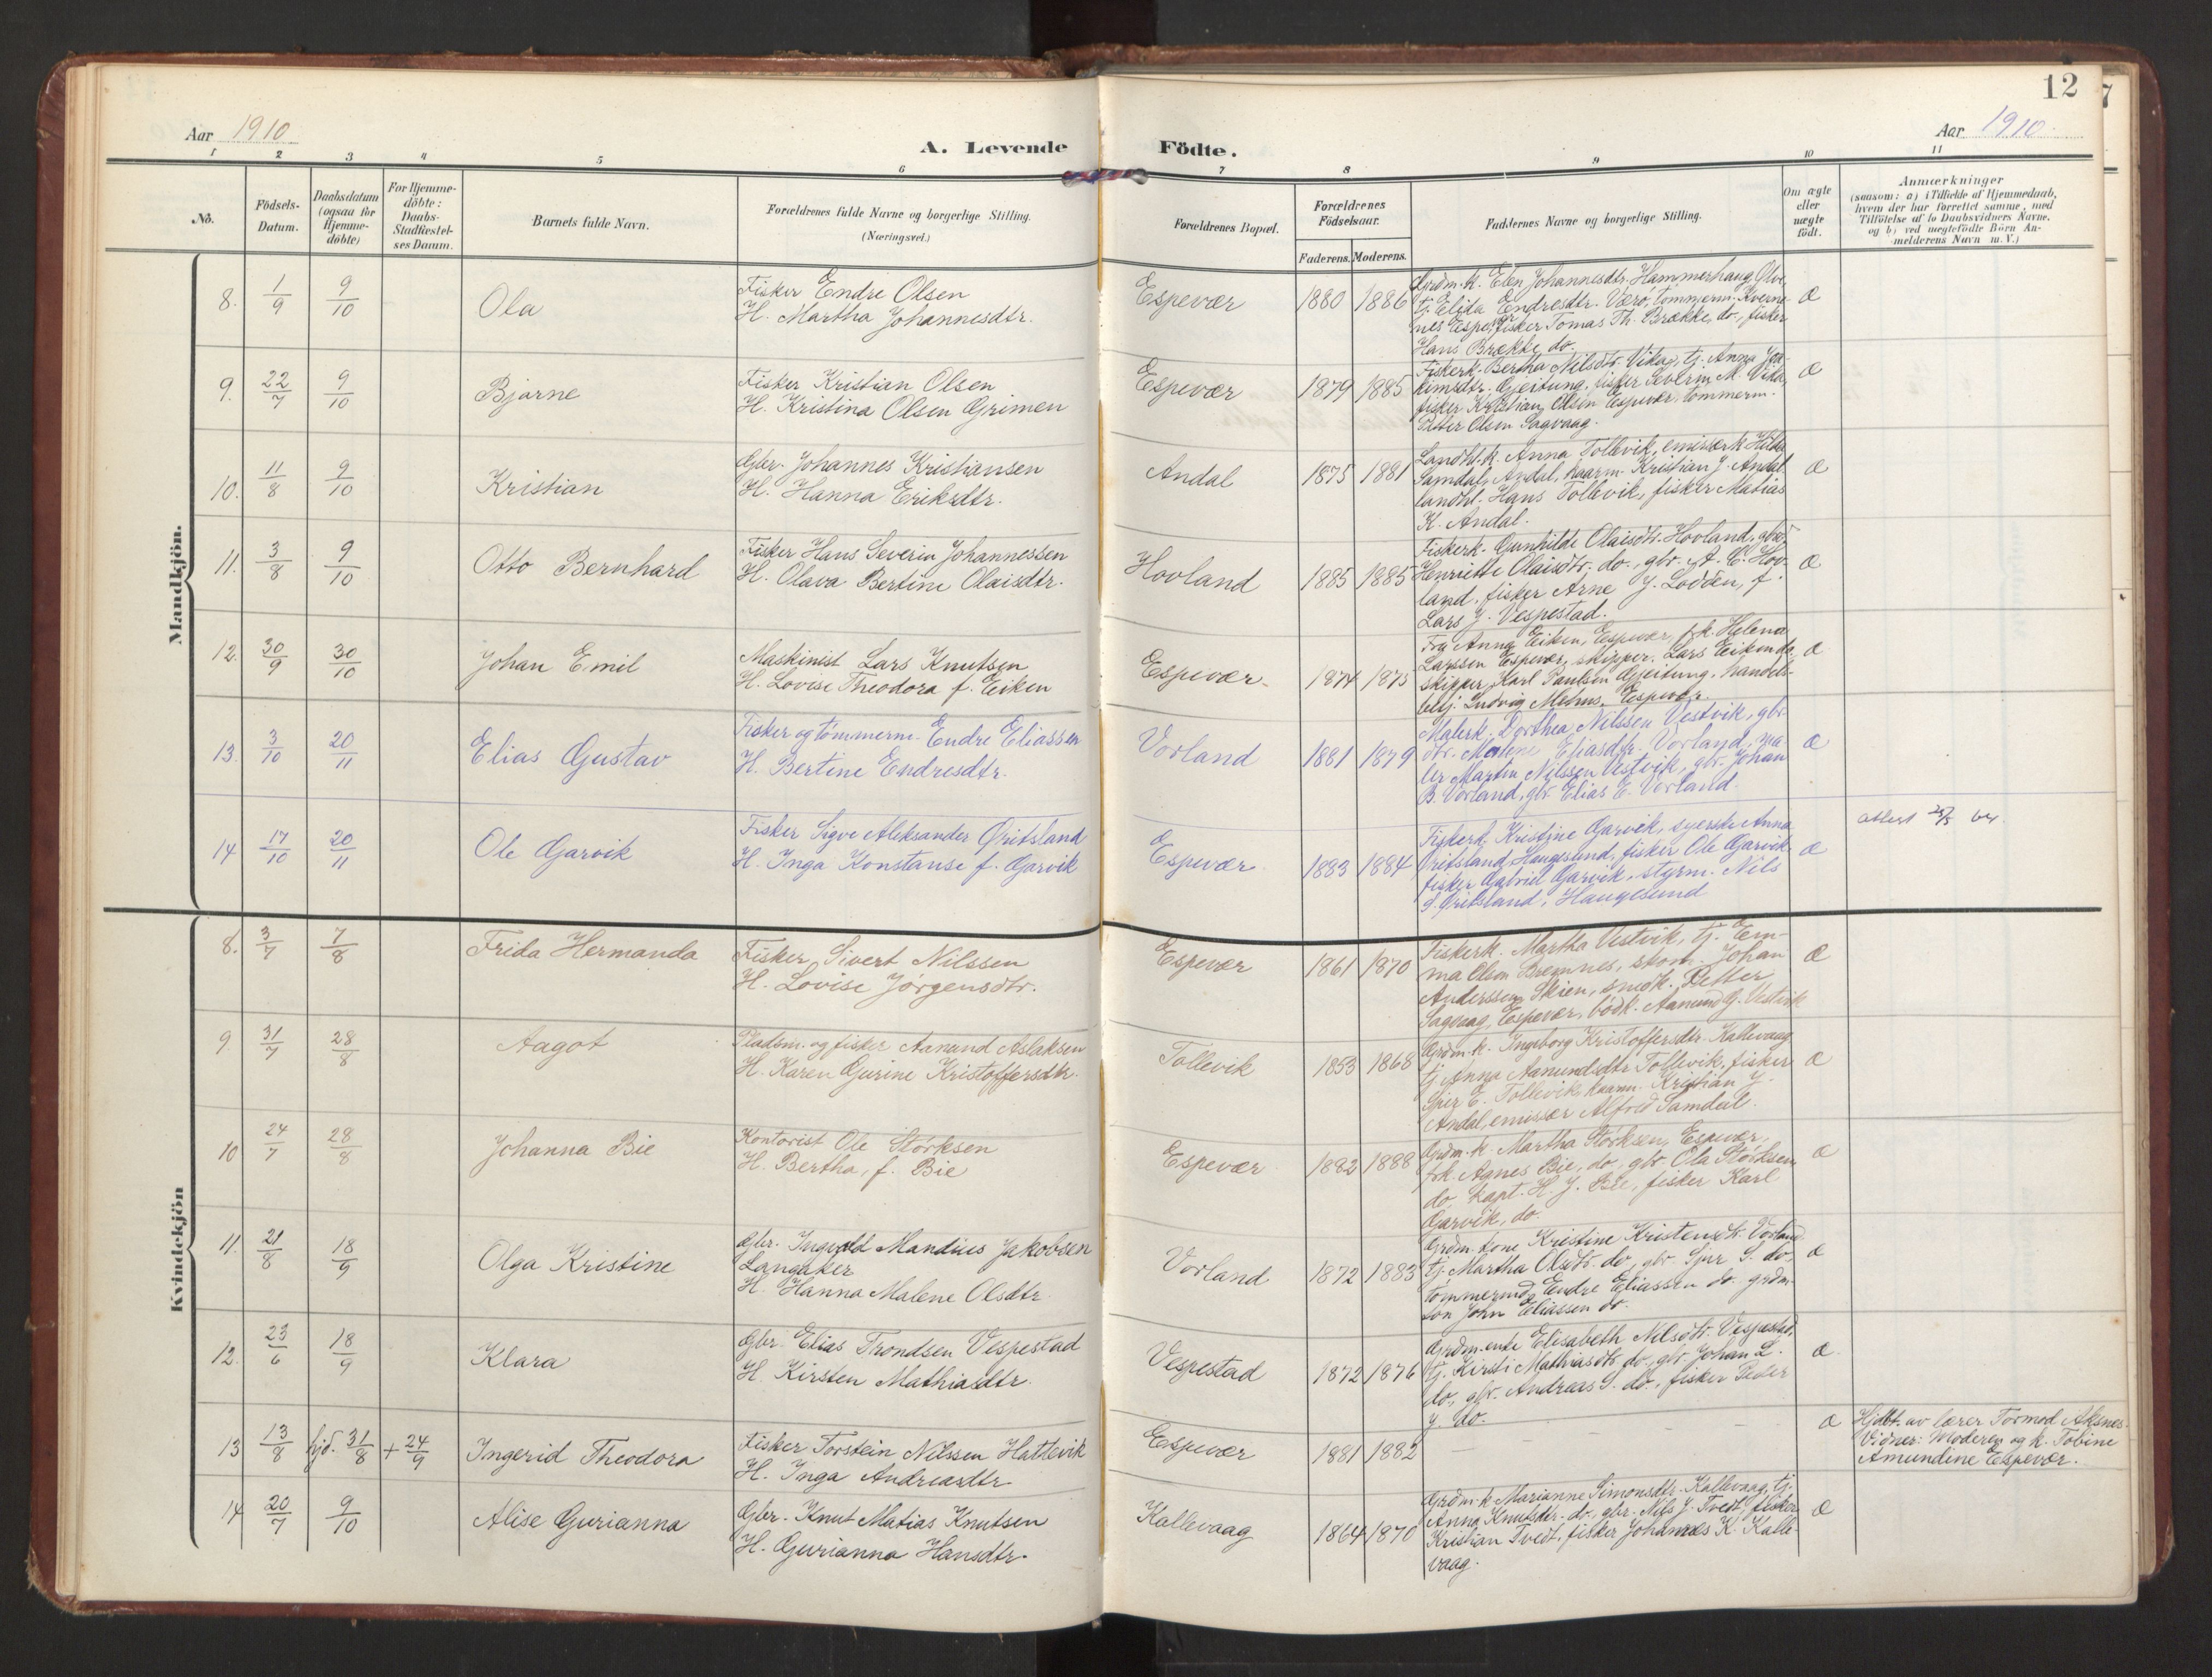 12
Aar 1910
A. Levende Födte.
Aar 1910.
1 2 3 4 5 6 7 8 9 10 11
No.
Födsels-
Datum.
Daabsdatum
(ogsaa for
Hjemme-
döbte)
For Hjemme-
döbte:
Daabs-
Stadfæstel-
ses Datum.
Barnets fulde Navn.
Forældrenes fulde Navne og borgerlige Stilling.
(Næringsvei.)
Forældrenes Bopæl.
Forældrenes
Födselsaar.
Faderens. Moderens.
Faddernes Navne og borgerlige Stilling.
Om ægte
eller
uægte
födt.
Anmærkninger
(saasom: a) i Tilfælde af Hjemmedaab,
hvem der har forrettet samme, med
Tilföielse af to Daabsvidners Navne.
og b) ved uægtefödte Börn An-
melderens Navn m. V.)
Mandkjön.
8. 1/9 9/10 Ola
Fisker Endre Olsen
H. Martha Johannesdtr.
Espevær 1880 1886
Grdm.k. Elen Johannesdtr. Hammerhaug Ølve,
tj. Elida Endresdtr. Værø, tømmerm. Kverne-
nes Espevær, fisker Tomas Th. Brække, do., fisker
Hans Brække do.
æ
9. 22/7 9/10 Bjarne
Fisker Kristian Olsen
H. Kristina Olsen Grimen
Espevær 1879 1885
Fiskerk. Bertha Nilsdtr. Vika, tj. Anna Joa-
kimsdtr. Gjeitung, fisker Severin M. Vika,
fisker Kristian Olsen Espevær, tømmerm.
Peter Olsen Sagvaag.
æ
10. 11/8 9/10 Kristian
Gbr. Johannes Kristiansen
H. Hanna Eriksdtr.
Andal 1875 1881
Landhl.k. Anna Tollevik, emissærk. Hilda
Samdal, Andal, kaarm. Kristian J. Andal
landhl. Hans Tollevik, fisker Matias
K. Andal.
æ
11. 3/8 9/10 Otto Bernhard
Fisker Hans Severin Johannessen
H. Olava Bertine Olaisdtr.
Hovland 1885 1885
Fiskerk. Gunhilde Olaisdtr. Hovland, gbr.
Henriette Olaisdtr. do., gbr. A. C. Hov-
land, fisker Arne J. Lodden, f.
Lars J. Vespestad.
æ
12. 30/9 30/10 Johan Emil
Maskinist Lars Knutsen
H. Lovise Theodora f. Eiken
Espevær 1874 1875
Fru Anna Eiken, Espevær, f.k. Helena
Larssen Espevær, skipper. Lars Eiken do.
skipper Karl Paulsen Gjeitung, handels-
betj. Ludvig Mehus, Espevær.
æ
13. 3/10 20/11 Elias Gustav
Fisker og tømmerm. Endre Eliassen
H. Bertine Endresdtr.
Vorland 1881 1879
Malerk. Dorthea Nilssen Vestvik, gbr.
dtr. Malene Eliasdtr. Vorland, ma-
ler Martin Nilssen Vestvik, gbr. Johan
B. Vorland, gbr. Elias E. Vorland.
æ
14 17/10 20/11 Ole Garvik
Fisker Sigve Aleksander Øritsland
H. Inga Konstanse f. Garvik
Espevær 1883 1884
Fiskerk. Kristine Garvik, syerske Anna
Øritsland, Haugesund, fisker Ole Garvik
fisker Gabriel Garvik, styrm. Nils
S. Øritsland, Haugesund
æ
Kvindekjön
8. 3/7 7/8 Frida Hermanda
Fisker Sivert Nilssen
H. Lovise Jørgensdtr.
Espevær 1861 1870
Fiskerk. Martha Vestvik, tj. Em-
ma Olsen Bremnes, skom. Johan
Anderssen Skien, snedk. Petter
Sagvaag, Espevær, bødk. Aamund G. Vestvik
æ
9 31/7 28/8 Aagot
Pladsm. og fisker Aanund Aslaksen
H. Karen Gurine Kristoffersdtr.
Tollevik 1853 1868
Grdm.k. Ingeborg Kristoffersdtr. Kallevaag
tj. Anna Aamundsdtr Tollevik, fisker
Sjer E. Tollevik, kaarm. Kristian J.
Andal, emissær Alfred Samdal.
æ
10 24/7 28/8 Johanna Bie
Kontorist Ole Størksen
H. Bertha, f. Bie
Espevær 1882 1888
Grdm.k. Martha Størksen, Espevær,
frk. Agnes Bie, do, gbr. Ola Størksen
do kapt. H. J. Bie, fisker Karl
Garvik, do.
æ
11. 21/8 18/9 Olga Kristine
Gbr. Ingvald Mandius Jakobsen
Langaker
H. Hanna Malene Olsdtr.
Vorland 1872 1883
Grdm. kone Kristine Kristensdtr. Vorland
tj. Martha Olsdtr. do, gbr. Sjur S. do,
tømmermd. Endre Eliassen do. grdm.
søn John Eliassen do.
æ
12. 23/6 18/9 Klara
Gbr. Elias Trondsen Vespestad
H. Kirsten Mathiasdtr.
Vespestad 1872 1876
Grdm.enke Elisabeth Nilsdtr. Vespestad,
tj. Kirsti Mathiasdtr do, gbr. Johan L.
do, gbr. Andreas S. do., fisker Peder
J. do.
æ
13 13/8 hjd. 31/8 + 24/9 Ingerid Theodora
Fisker Torstein Nilssen Hattevik
H. Inga Andreasdtr
Espevær 1881 1882
æ
Hjdbt. av lærer Tormod Aksnes.
Vidner: Moderen og k. Tobine
Amundine Espevær.
14 20/7 9/10 Alise Gurianna
Gbr. Knut Matias Knutsen
H. Gurianna Hansdtr.
Kallevaag 1864 1870
Grdm.k. Marianne Simonsdtr. Kallevaag, tj.
Anna Knutsdtr. do, gbr. Nils J. Tvedt, fisker
Kristian Tvedt, fisker Johannes K. Kalle-
vaag.
æ